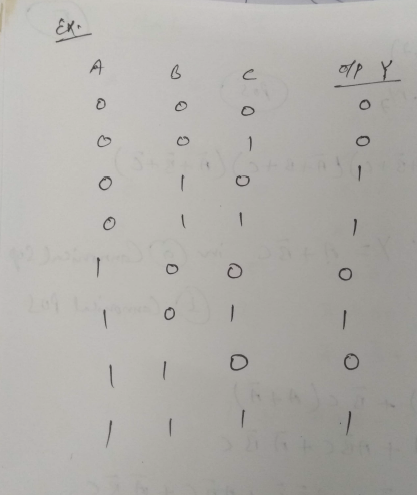 Ex.
A B C O/P Y
0 0 0 0
0 0 1 0
0 1 0 1
0 1 1 1
1 0 0 0
1 0 1 1
1 1 0 0
1 1 1 1